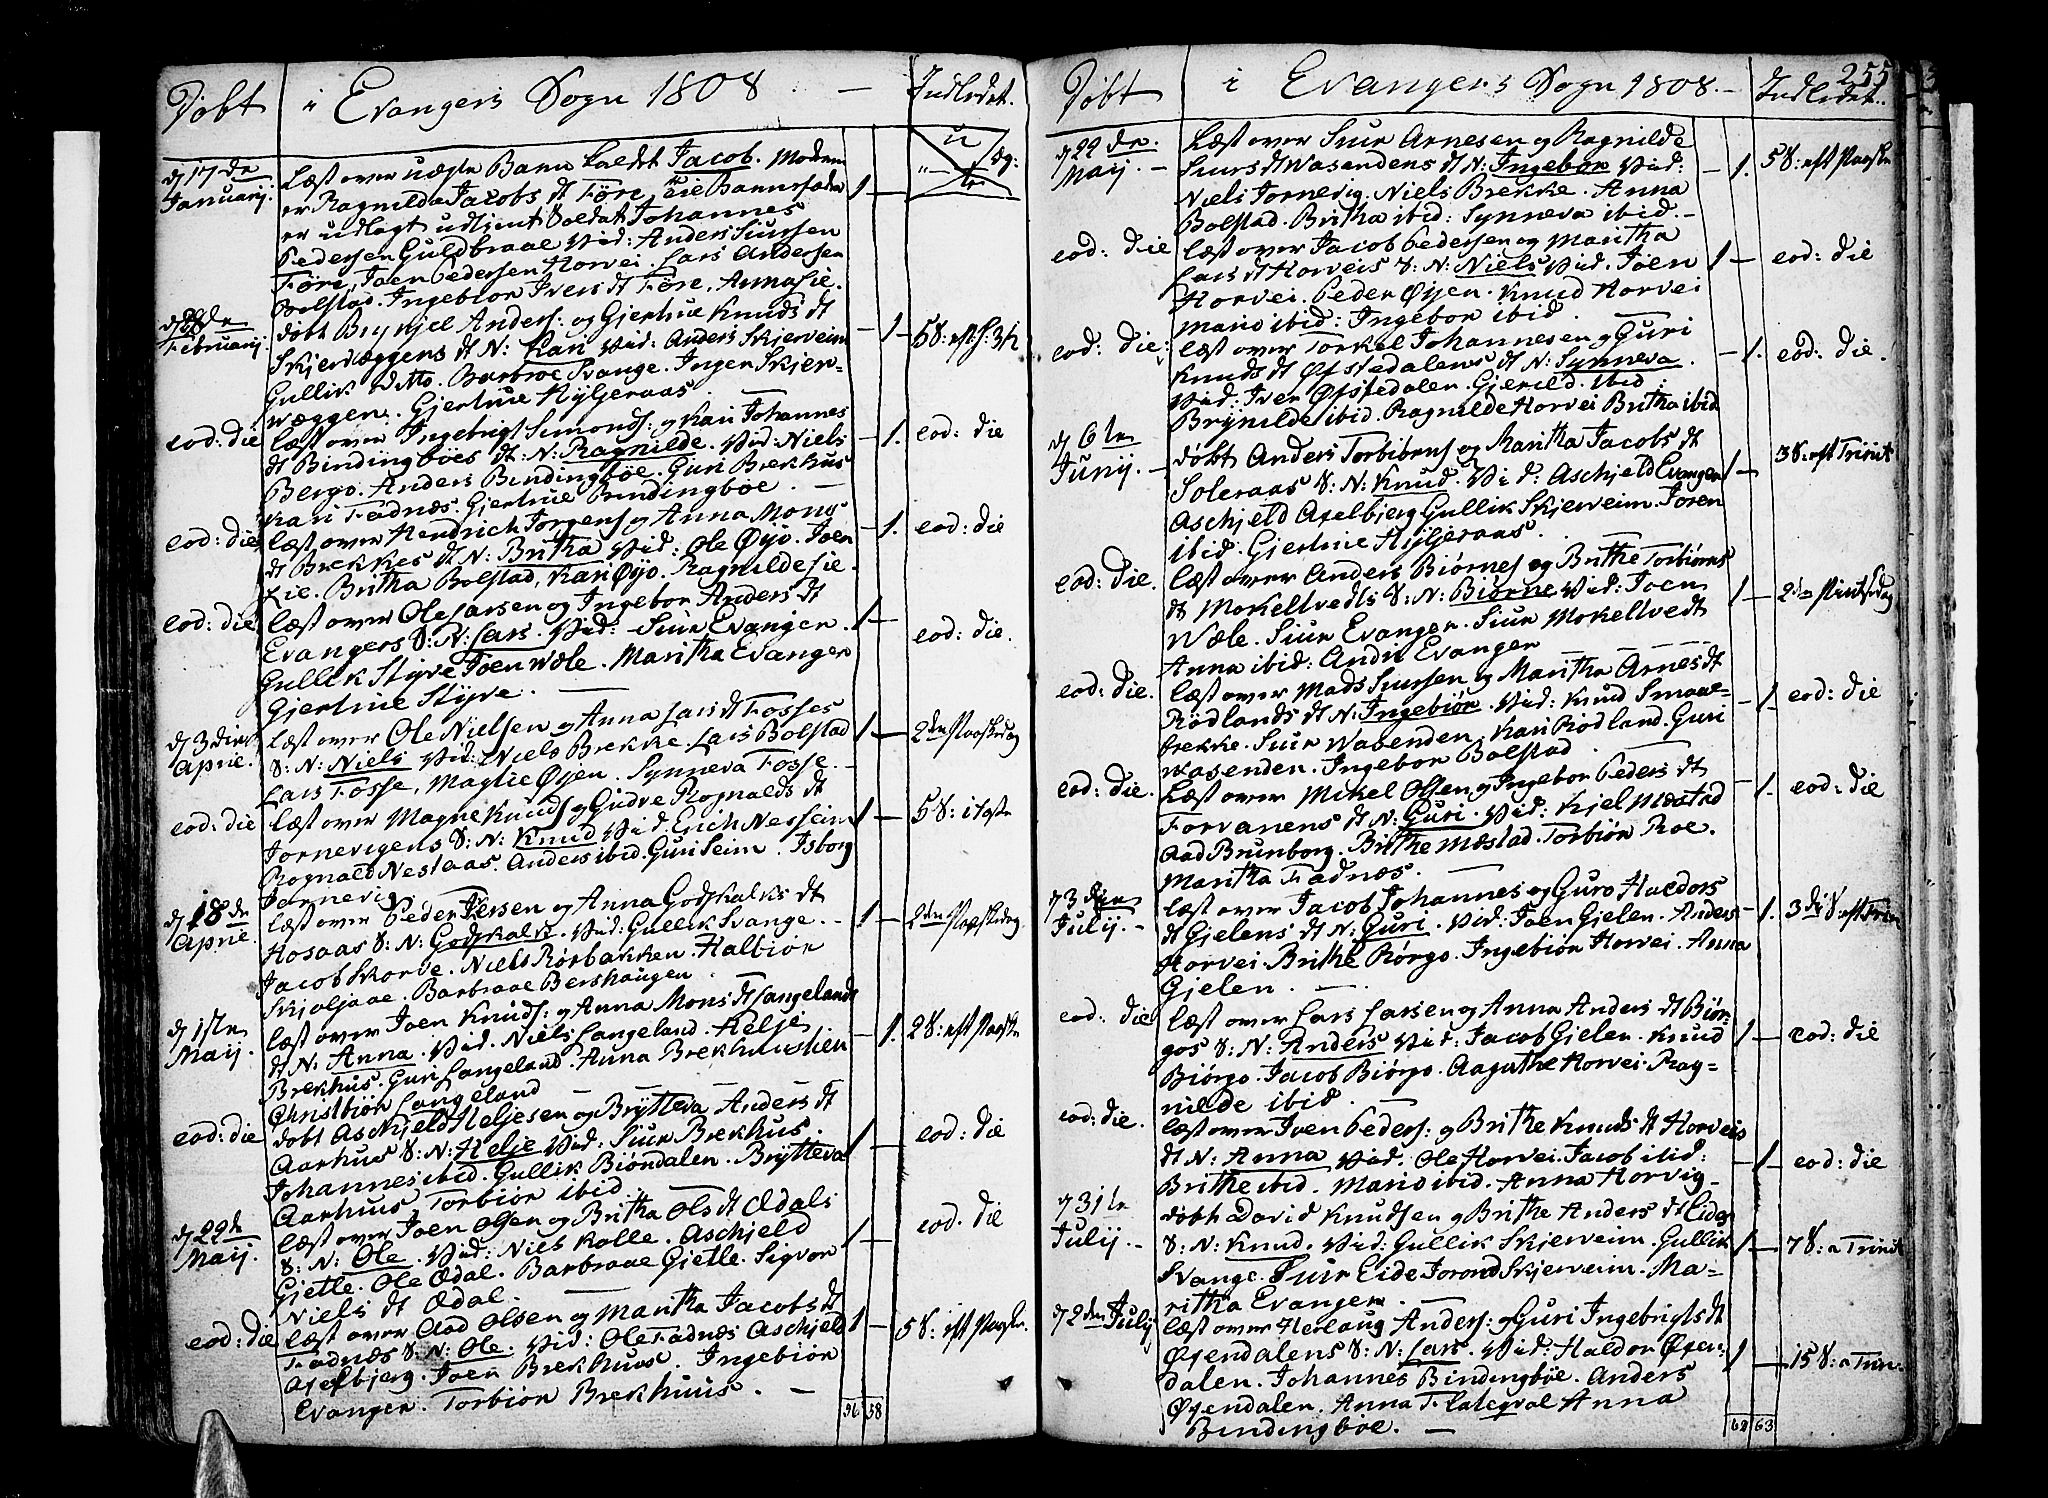 Døbt
i Evangers Sogn 1808
Indledet.
d 17de Januarij.
Læst over uægte Barn kaldet Jacob. Moderen
er Ragnilda Jacobs dt Føre, til Barnefader
er udlagt udtient Soldat Johannes
Pedersen Guldbraae Vid: Anders Siursen
Føre, Joen Pedersen Horvei. Lars Andersen
Bolstad. Ingebior Ivers dt Føre, Anna Lie.
Februarij
døbt Brynjel Anders: og Giertrue Knuds dt
Skjervæggens dt N: Kari Vid: Anders Skjerveim
Gullik ditto. Barbroe Svange. Inger Skjer-
væggen. Gjertrue Hyljeraas
eod: die
læst over Ingebrigt Simons: og Kari Johannes
dt Bindingbøes dt: N: Ragnilde. Vid: Niels
Bergo. Anders Bindingbøe. Guri Brekhus
Kari Fadnæs. Gjertrue Bindingbøe.
eod: die
eod: die
læst over Hendrich Jørgens og Anna Mons
dt Brekkes dt N: Britha Vid: Ole Øyo. Joen
Lie. Britha Bolstad, Kari Øyo. Ragnilde Lie.
eod: die
eod: die
læst over Ole Larsen og Ingebor Anders dt
Evangers S: N: Lars. Vid: Siur Evanger.
Gullik Styve Joen Wæle. Maritha Evanger
Gjertrue Styve.
eod: die.
d 3die Aprie.
læst over Ole Nielsen og Anna Lars dt Fosses
S: N: Niels Vid: Niels Brekke. Lars Bolstad
Lars Fosse, Magtie Øyen. Synneva Fosse.
2den Paaskedag
eod: die
læst over Magne Knuds og Gudve Rognalds dt
Jornevigens S: N: Knud Vid: Erich Nesheim
Rognald Nestaas. Anders ibid. Guri Seim. Isborg
Jornevig
d 18de Aprie.
læst over Peder Iversen og Anna Godskalks dt
Hosaas S: N: Godskalk. Vid: Gullik Svange.
Jacob Skorve. Niels Rørbakken. Halbiør
Skjoljaae. Barbraae Bershaugen
2den Paaskedag
d 1ste Maij.
læst over Joen Knuds: og Anna Mons dt Langelands
dt N: Anna. Vid. Niels Langeland. Helje
Brekhus. Guri Langeland. Anna Brekhuuslien
Christbiør Langeland
2 S: eft Paaske
eod: die
døbt Aschjeld Heljesen og Brytteva Anders dt
Aarhus S: N: Helje Vid: Siur Brekhus.
Johannes ibid. Gullik Biøndalen. Brytteva
Aarhus, Torbiør ibid.
eod: die
d 22de Maij.
læst over Joen Olsen og Britha Ols dt Ædals
S: N: Ole. Vid: Niels Kolle. Aschjeld
Gjetle. Ole Ædal. Barbraae Gjetle. Sigvor
Niels dt Ædal.
eod. die
eod: die
læst over Aad Olsen og Maritha Jacobs dt
Fadnæs S: N: Ole. Vid: Ole Fadnæs Aschjeld
Axelbjerg. Joen Brekhuus. Ingebiør
Evanger. Torbiør Brekhuus.
5 S: eft Paaske.
56 58
255
Døbt
i Evangers Sogn 1808.
Indledet.
d 22de Maij.
Læst over Siur Arnesen og Ragnilde
Siurs dt Wasendens dt N: Ingebor Vid:
Niels Jornevig. Niels Brekke. Anna
Bolstad. Britha ibid: Synneva ibid.
5 S: eft Paaske
eod: die
læst over Jacob Pedersen og Maritha
Lars dt Horveis S: N: Niels Vid. Joen
Horvei. Peder Øyen. Knud Horvei
Mari ibid: Ingebor ibid.
eod: die
eod: die:
læst over Torkel Johannesen og Guri
Knuds dt Øfstedalens dt N: Synneva.
Vid: Iver Øfstedalen. Gjerild. ibid
Brynilde ibid. Ragnilde Horvei Britha ibid
eod: die.
d 6te Junij.
døbt Anders Torbiørns og Maritha Jacobs dt
Soleraas S: N: Knud. Vid: Aschjeld Evanger
Aschjeld Axelbjerg Gullik Skjerveim. Joren
ibid. Gjertrue Hyljeraas.
3 S: eft Trinit
eod: die.
læst over Anders Biørnes og Brithe Torbiørns
dt Mokeltvedts S: N: Biørne Vid: Joen
Wæle. Siur Evanger. Siur Mokeltvedt
Anna ibid: Andri Evanger
2den Pintsedag
eod: die.
læst over Mads Siursen og Maritha Arnes dt
Rødlands dt N: Ingebiør. Vid: Knud Smaae-
brekke. Siur Wasenden. Kari Rødland. Guri
Wasenden. Ingebor Bolstad.
eod: die
eod: die.
Læst over Mikel Olsen og Ingebor Peders dt
Forvanens dt N: Guri. Vid: Kjel Mæstad
Aad Brunborg. Brithe Mæstad. Torbiør Roe.
Maritha Fadnæs.
eod: die
d 3die Julij.
læst over Jacob Johannes og Guro Haldors
dt Gjelens dt N: Guri. Vid: Joen Gjelen. Anders
Horvei. Brithe Rørgo. Ingebiør Horvei. Anna
Gjelen.
eod: die
læst over Lars Larsen og Anna Anders dt Biør-
gos S: N: Anders Vid: Jacob Gjelen. Knud
Biørgo. Jacob Biørgo. Aagathe Horvei. Rag-
nilde ibid.
eod: die
eod: die.
læst over Iven Peders: og Brithe Knuds dt Horveis
dt N: Anna Vid. Ole Horvei. Jacob ibid:
Brithe ibid. Mari ibid. Anna Horvig.
eod: die
d 31te Julij.
døbt David Knudsen og Brithe Anders dt Eides
S: N: Knud. Vid: Gullik Skjerveim. Gullik
Svange. Siur Eide Jorond Skjerveim. Ma-
ritha Evanger.
7 S: a Trinit
d 2den Julij
læst over Herlaug Anders: og Guri Ingebrigts dt
Øyendalens S: N: Lars. Vid: Haldor Øyen-
dalen. Johannes Bindingbøe. Anders
Øyendalen. Anna Flateqval Anna
Bindingbøe.
15 S: a Trin.
62 63